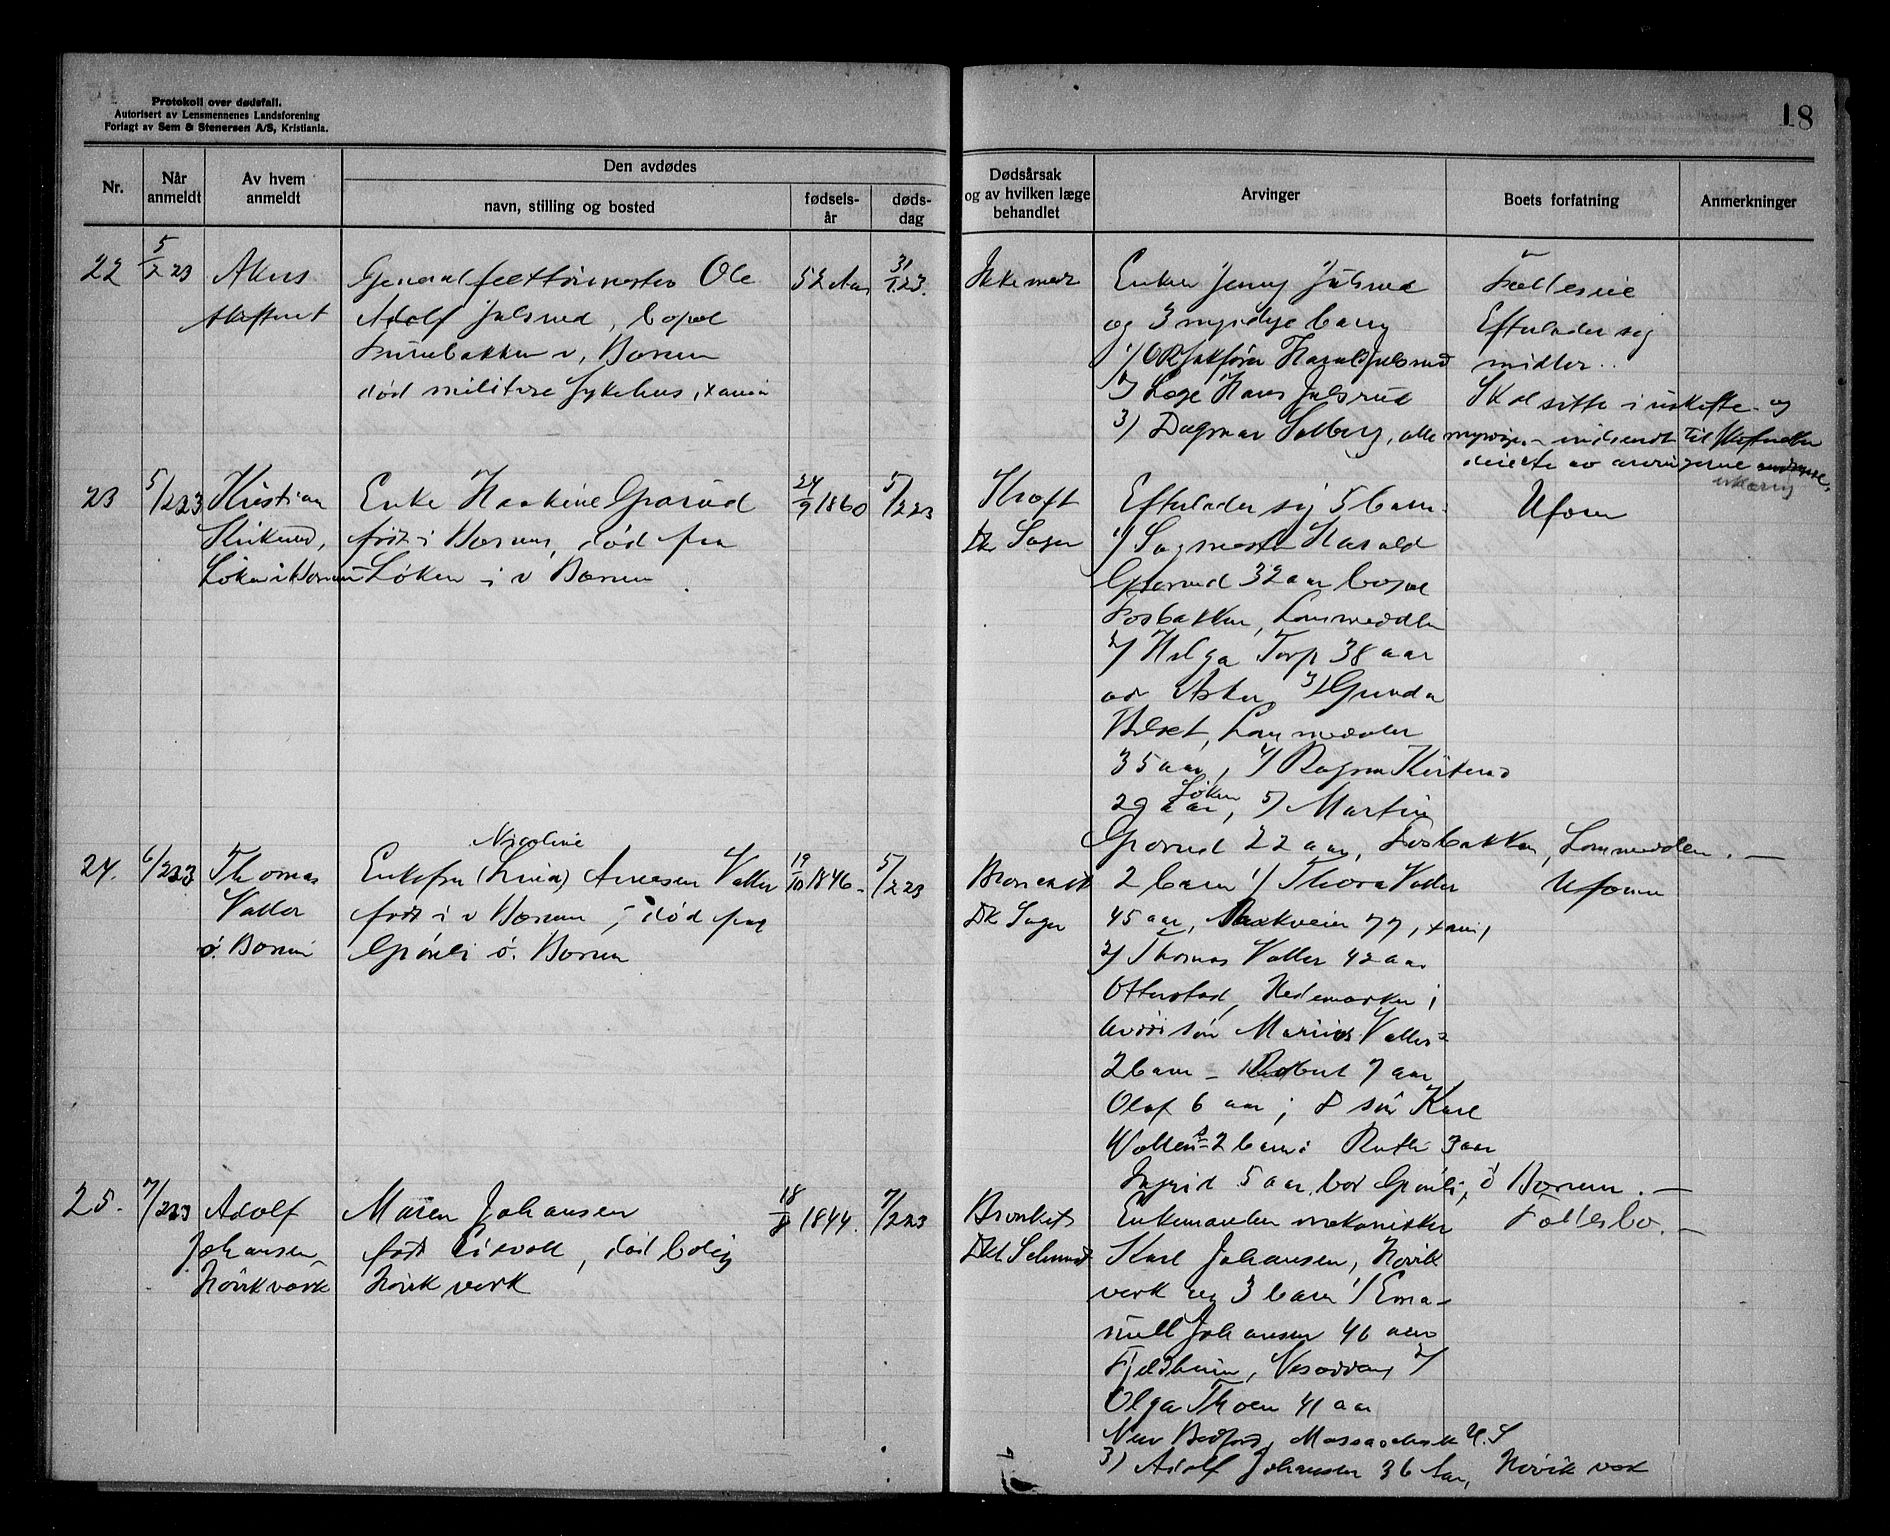 Protokoll over dødsfall.
Autorisert av Lensmennenes Landsforening
Forlagt av Sem & Stenersen A/S, Kristiania.
18
Nr.
Når anmeldt
Av hvem anmeldt
Den avdødes
navn, stilling og bosted
fødsels-år
døds-dag
Dødsårsak og av hvilken læge behandlet
Arvinger
Boets forfatning
Anmerkninger
22
5/2 23
Akers
Skifteret
Generalfelttøimester Ole
Adolf Julsrud, bopæl
Furubakken v. Bærum
død militære sykehus, Xania
52 Aar
31/1 23.
Enken Jenny Julsrud
og 3 myndige barn
1/ O.R.sakfører Harald Julsrud
2) Læge Hans Julsrud
3) Dagmar Solberg, alle myndige
Fælleseie
Efterlader sig
midler.
Skal sitte i uskifte og
indsendt til Skifteretten
av arvingerne
erklæring
23
5/2 23
Kristian
Løken i V Bærum
Enke Haakine Gjørud
født i Bærum, død fra
Løken i v Bærum
24/9 1860
5/2 23
Kræft
Dr. Sager
Efterlader sig 5 barn.
1/ Sagmester Harald
32 aar bopæl
Fosbakken, Lommedalen
2/ Helga Torp 38 aar
Asker 3/ Gunda
Lommedalen
35 aar, 4/ Ragna
29 aar, Løken 5) Martin
22 aar, Fosbakken, Lommedalen. —
Uform
24.
6/2 23
Thomas
Valler
ø. Bærum
Nicoline
Enkefru (Lina) Andresen Valler
født i v Bærum, død fra
Grønli ø. Bærum
19/10 1846
5/2 23
Dr. Sager
2 barn 1/ Thora Valler
45 aar, Parkveien 77, Xania,
2/ Thomas Valler 42 aar
Otterstad, Hedemarken;
avdøde søn Marius Vallers
2 barn — Robert 7 aar
Olaf 6 aar; søn Karl
Vallers 2 barn: Ruth 3 aar
Ingrid 5 aar, bor Grønli, ø Bærum. —
Uform
25.
7/2 23
Adolf
Johansen
Høvik værk
Maren Johansen
født Eidsvoll, død bolig
Høvik verk
18/8 1844.
7/2 23
Bronkit
Enkemanden mekaniker
Karl Johansen, Høvik
verk og 3 barn 1/ Ema-
nuel Johansen 46 aar
Fjeldheim, 2/
Olga Thoen 41 aar
New Bedford, U.S
3) Adolf Johansen 36 Aar, Høvik verk
Fællesbo. —